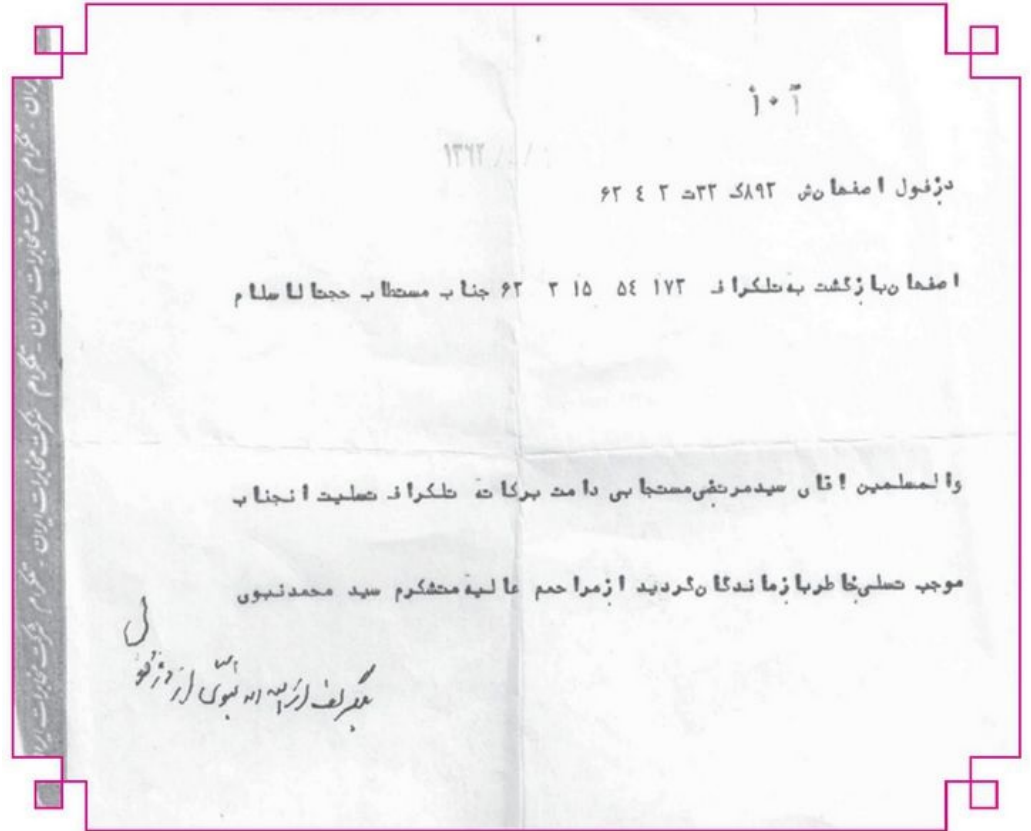 آ ۰ أ
۱۳۶۲
دزفول اصفهان ش ۸۹۲ک ۳۳ت ۲ ٤ ۶۲
اصفهان بازگشت به تلکراف ۱۷۳ ٥٤ ۱٥ ۳ ۶۲ جناب مستطاب حجتالاسلام
والمسلمین اقای سیدمرتضی مستجابی دامت برکاته تلکراف تسلیت انجناب
موجب تسلی خاطر بازماندگان گردید ازمراحم عالیه متشکرم سید محمدنبوی
تلگراف از آیة الله نبوی از دزفول
شرکت مخابرات ایران - تلگرام شرکت مخابرات ایران - تلگرام شرکت مخابرات ایران - تلگرام شرکت مخابرات ایران